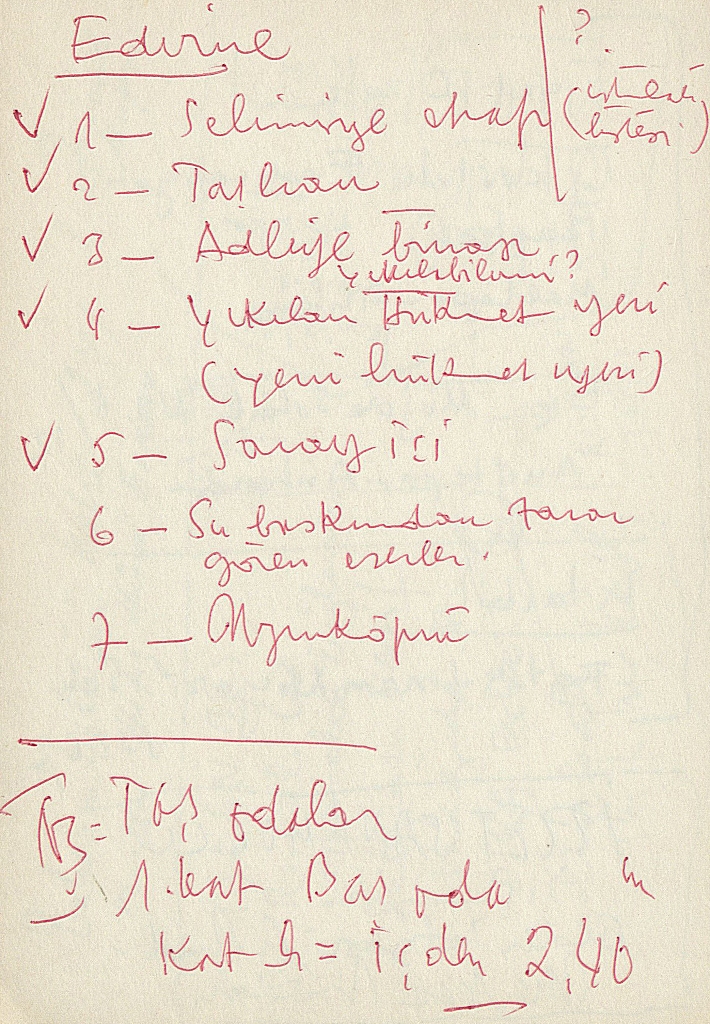 Edirne
?
✓ 1 — Selimiye etrafı
(istimlak
listesi)
✓ 2 — Taşhan
✓ 3 — Adliye binası
yıkılabilir mi?
✓ 4 — Yıkılan Hükmet yeri
(yeni hükmet yeri)
✓ 5 — Saray içi
6 — Su baskından zarar
gören eserler.
7 — Uzunköprü
NB = Taş odalar
1. kat Baş oda
m
Kat h = İçden 2,40